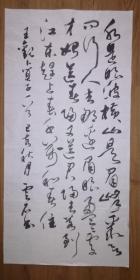 水是眼波横山是眉峰聚欲
问行人去那边眉眼盈盈处
才始送春归又送君归去若到
江东赶上春千万和春住
王観卜算子 己亥秋月 雲书